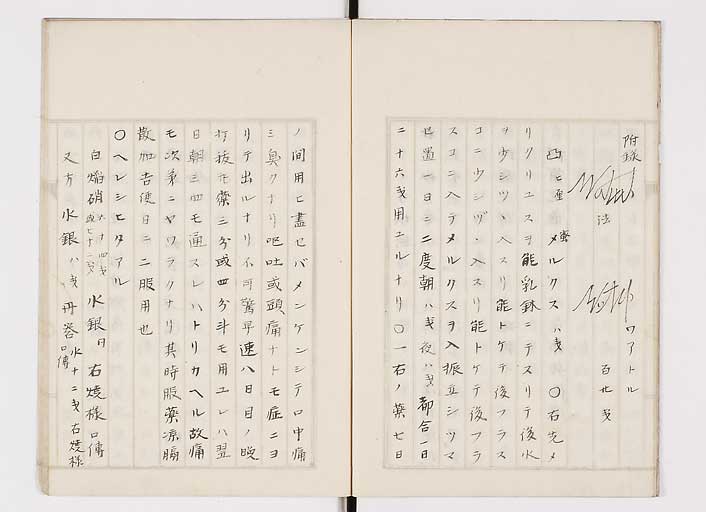 附録
法 ワアトル 百廿戔
蜜 メルクス 八戔 〇右先メ
リクリユスヲ能乳鉢ニテスリテ後水
ヲ少シツヽ入スリ能トケテ後フラス
コニ少シヅヽ入スリ能トケテ後フラ
スコニ入テメルクスヲ入振立シツマ
セ置一日ニ二度朝八戔夜八戔都合一日
二十六戔用ユルナリ〇一右ノ薬七日
ノ間用ヒ盡セバメンケンシテロ中痛
ミ臭クナリ呕吐或頭痛ナトモ症ニヨ
リテ出ルナリ不可驚早速八日目ノ晩
打抜モ藥三分或四分斗モ用ユレハ翌
日朝三四モ通スレハトリカヘル故痛
モ次第ニヤワラクナリ其時服薬凉膈
散加吉便日ニ二服用也
〇ヘレシヒタアル
白焔硝 水銀 右焼様口傳
又方 水銀八戔 丹礬水十二戔右焼様口傳